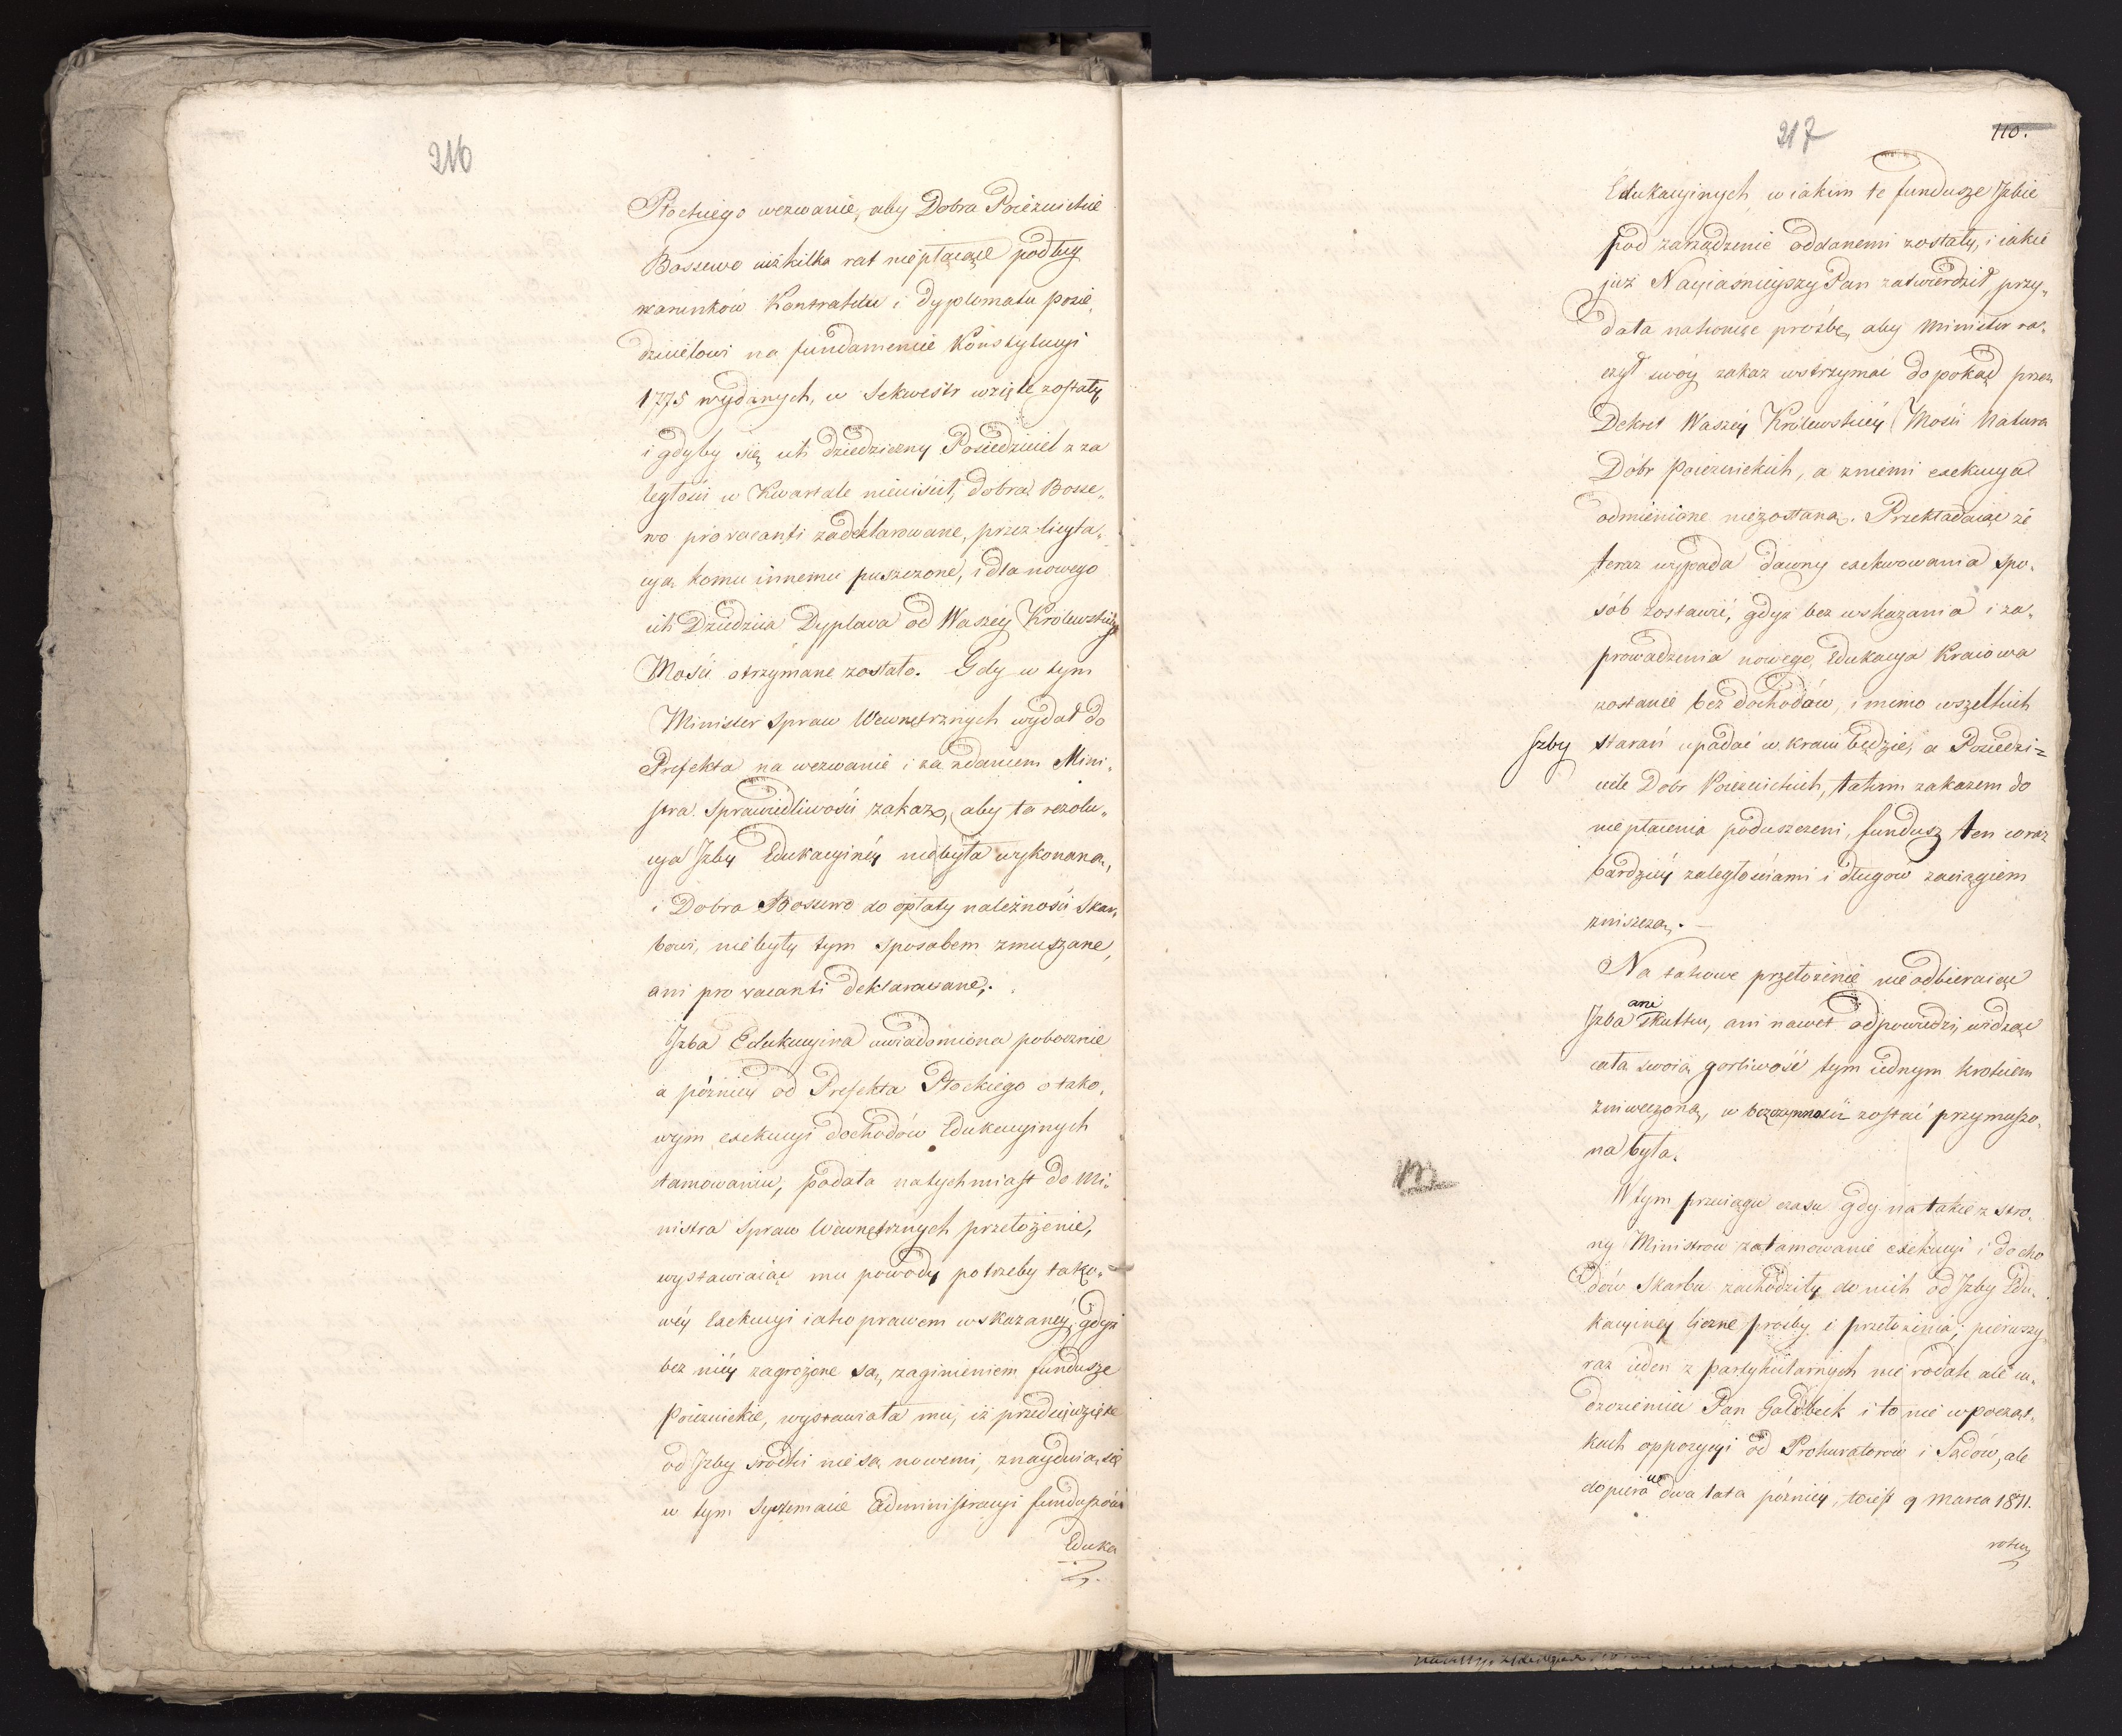 216
Płockiego wezwanie, aby Dobra Poiezuickie
Bossewo iuż kilka rat niepłacące podług
warunków Kontraktu i dyplomatu posie„
dzicielowi na fundamencie Konstytucyi
1775 wydanych, w Sekwestr wzięte zostały,
i gdyby się ich dziedziczny Posiedziciel z za
ległości w Kwartale nieuiścił, dobra Bosse„
wo pro vacanti zadeklarowane, przez licyta„
cyą komu innemu puszczone, i dla nowego
ich Dziedzica Dyploma od Waszéy Królewskiéy
Mości otrzymane zostało. Gdy w tym
Minister Spraw Wewnętrznych wydał do
Prefekta na wezwanie i za zdaniem Mini„
stra Sprawiedliwości zakaz, aby ta rezolu„
cya Izby Edukacyinéy niebyła wykonaną,
i Dobra Bossewo do opłaty należności Skar„
bowi, niebyły tym sposobem zmuszane,
ani pro vacanti deklarowane.
Izba Edukacyina uwiadomiona pobocznie
a późniéy od Prefekta Płockiego o tako„
wym exekucyi dochodów Edukacyinych
tamowaniu, podała natychmiast do Mi„
nistra Spraw Wewnętrznych przełożenie,
wystawiaiąc mu powody potrzeby tako„
wéy Exekucyi iako prawem wskazanéy, gdyż
bez niéy zagrożone są, zaginieniem fundusze
Poiezuickie, wystawiała mu, iż przedsięwzięte
od Izby srodki nie są nowemi, znayduią się
w tym Systemacie Administracyi funduszów
Eduka
217
110.
Edukacyinych, w iakim te fundusze Izbie
pod zarządzenie oddanemi zostały, i iakie
już Nayiaśnieyszy Pan zatwierdził, przy„
dała nakoniec prośbę, aby Minister ra„
czył swóy zakaz wstrzymać dopókąd przez
Dekret Waszéy Królewskiéy Mości Natura
Dóbr Poiezuickich, a z niemi exekucya
odmienione niezostaną. Przekładaiąc że
teraz wypada dawny exekwowania spo„
sób zostawić, gdyż bez wskazania i za„
prowadzenia nowego, Edukacya Kraiowa
zostanie bez dochodów, i mimo wszelkich
Izby starań upadać w kraiu będzie, a Posiedzi=
ciele Dobr Poiezuickich, takim zakazem do
niepłacenia poduszczeni, fundusz ten coraz
bardziéy zaległościami i długów zaciągiem
zniszczą. —
Na takowe przełożenie nieodbieraiąc
Izba ani skutku, ani nawet odpowiedzi, widząc
całą swoią gorliwość tym iednym krokiem
zniweczoną, w bezczynności zostać przymuszo„
na była.
W tym przeciągu czasu gdy na takie z stro„
ny Ministrów zatamowanie exekucyi i docho
dów Skarbu zachodziły do nich od Izby Edu„
kacyiney liczne prośby i przełożenia; pierwszy
raz ieden z partykularnych nie rodak ale cu„
dzoziemiec Pan Goldbeck i to nie w począt„
kach oppozycyi od Prokuratorów i Sądów, ale
dopiero we dwa lata późniéy, to iest 9 Marca 1811.
roku